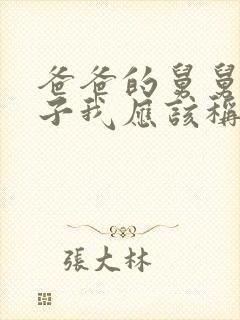 爸爸的舅舅
子我應該稱
張大林